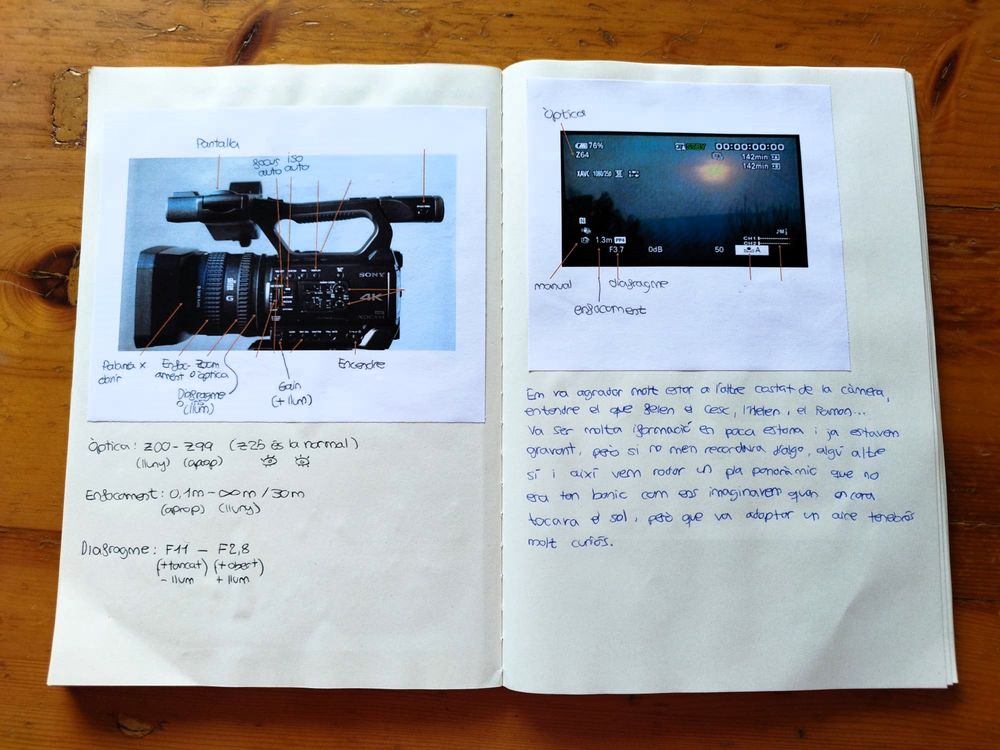 Pantalla
focus iso
auto auto
SONY
4K
XDCAM
G
Palanca x
obrir
Enfoc- Zoom
òptica
Diafragme
(llum)
Gain
(+ llum)
Encendre
Òptica: Z00 - Z99 (Z25 és la normal)
(lluny) (aprop)
Enfocament: 0,1m - ∞m / 30m
(aprop) (lluny)
Diafragme: F11 - F2,8
(+tancat) (+obert)
- llum + llum
Òptica
76%
STBY 00:00:00:00
Z64
142min
142min
XAVC 1080/250
N
1.3m PP4
F3.7 0dB 50 A
CH1
CH2
manual
diafragme
enfocament
Em va agradar molt estar a l'altre costat de la càmera,
entendre el que feien el Cesc, l'Helen, el Ramon...
Va ser molta iformació en poca estona i ja estavem
gravant, però si no men recordava d'algo, algú altre
sí i així vem rodar un pla panoràmic que no
era tan bonic com ens imaginavem quan encara
tocava el sol, però que va adoptar un aire tenebrós
molt curiós.